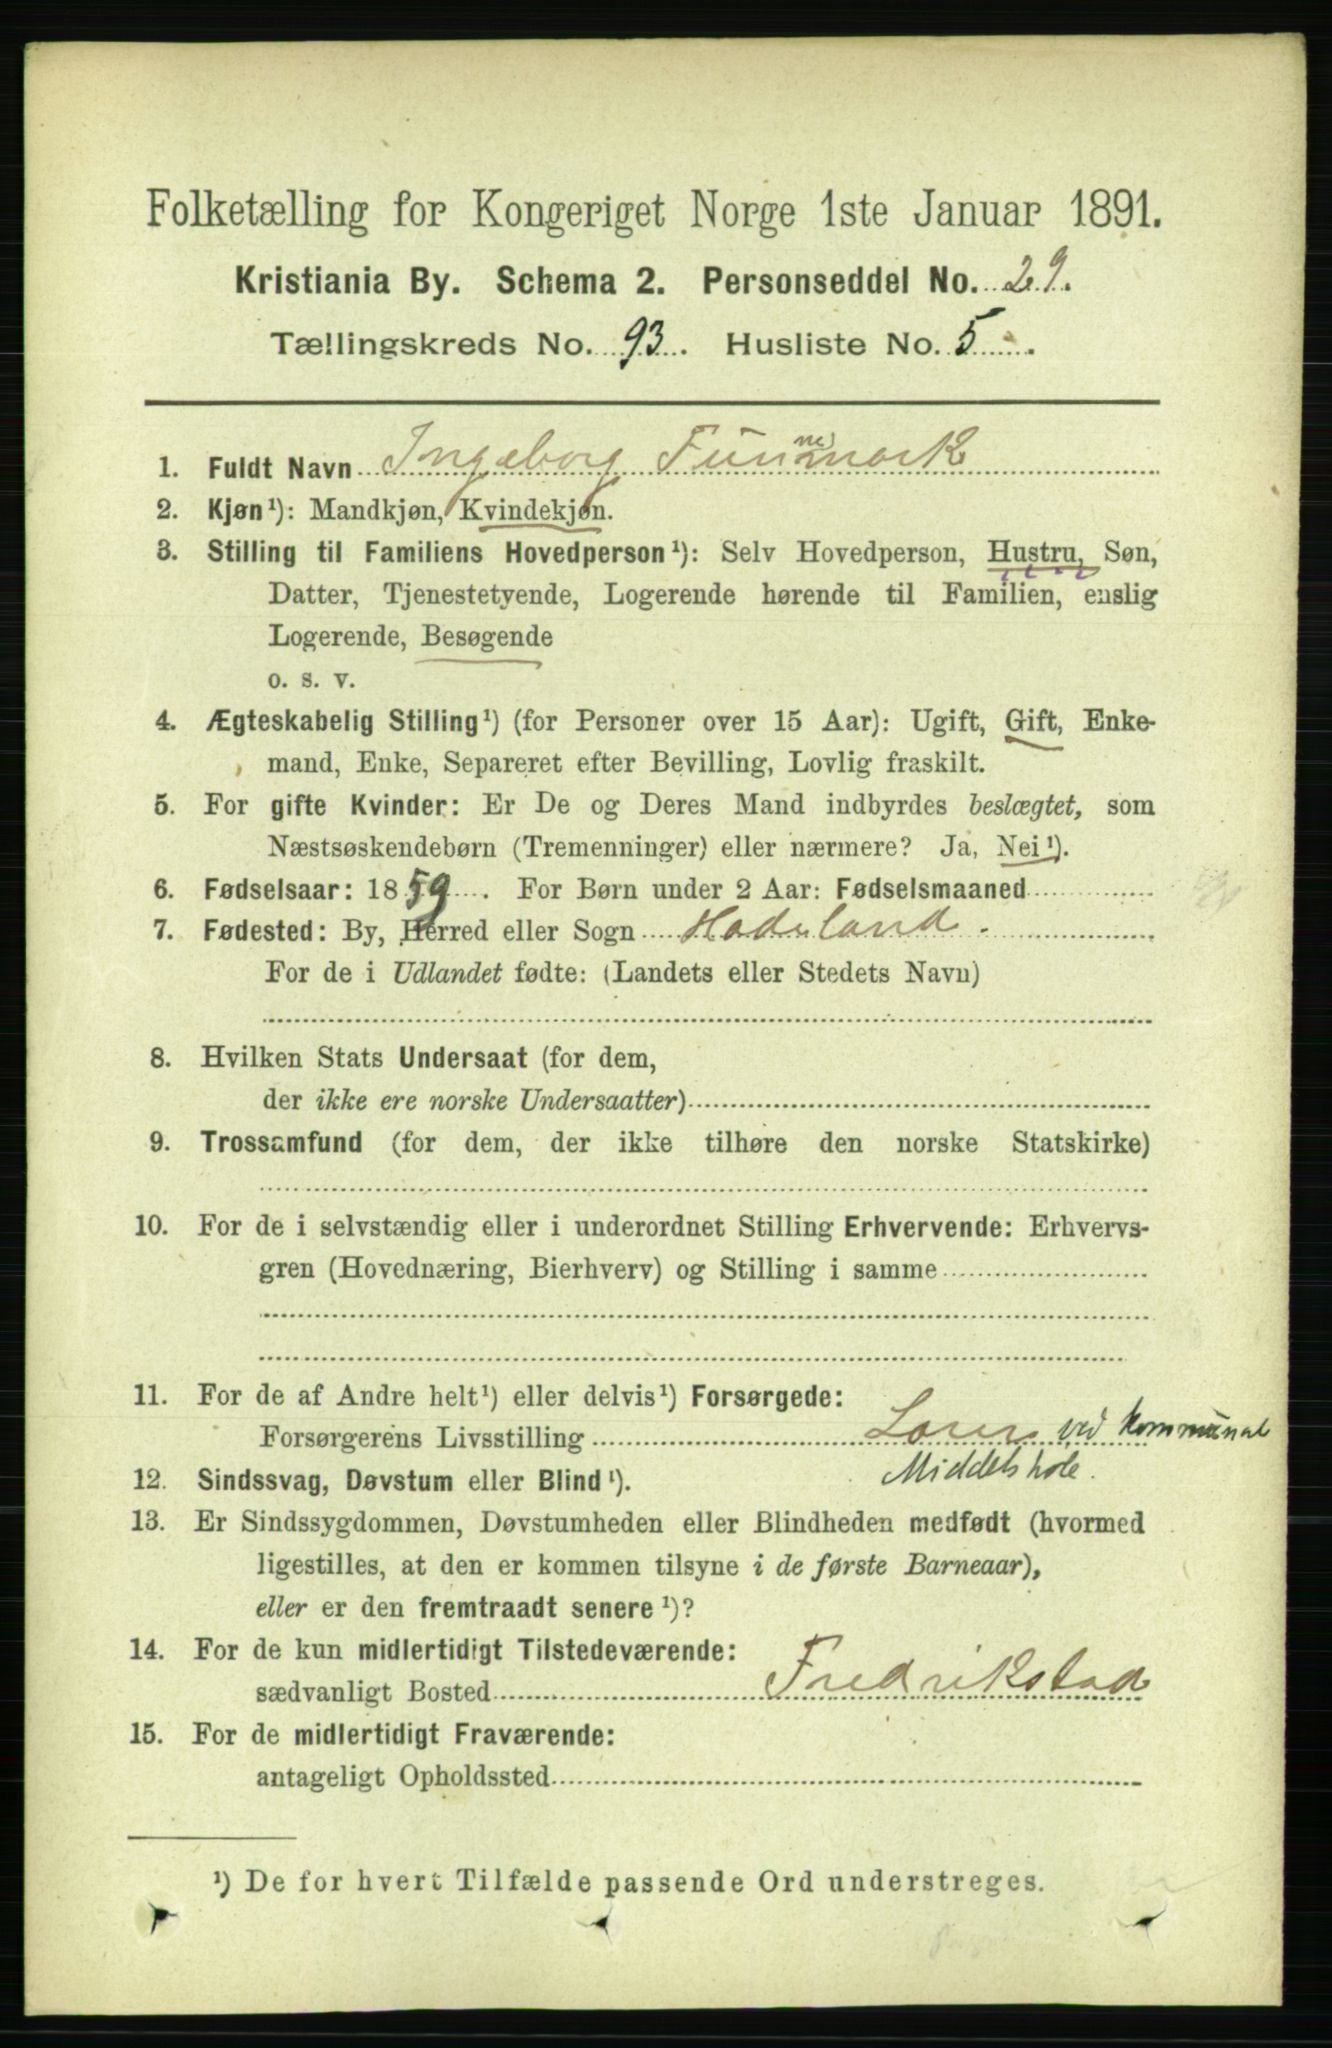 Folketælling for Kongeriget Norge 1ste Januar 1891.
Kristiania By. Schema 2. Personseddel No. 29.
Tællingskreds No. 93. Husliste No. 5.
1. Fuldt Navn Ingeborg
2. Kjøn¹): Mandkjøn, Kvindekjøn.
3. Stilling til Familiens Hovedperson¹): Selv Hovedperson, Hustru, Søn,
Datter, Tjenestetyende, Logerende hørende til Familien, enslig
Logerende, Besøgende
o. s. v.
4. Ægteskabelig Stilling¹) (for Personer over 15 Aar): Ugift, Gift, Enke-
mand, Enke, Separeret efter Bevilling, Lovlig fraskilt.
5. For gifte Kvinder: Er De og Deres Mand indbyrdes beslægtet, som
Næstsøskendebørn (Tremenninger) eller nærmere? Ja, Nei¹).
6. Fødselsaar: 1859. For Børn under 2 Aar: Fødselsmaaned
7. Fødested: By, Herred eller Sogn Hadeland.
For de i Udlandet fødte: (Landets eller Stedets Navn)
8. Hvilken Stats Undersaat (for dem,
der ikke ere norske Undersaatter)
9. Trossamfund (for dem, der ikke tilhøre den norske Statskirke)
10. For de i selvstændig eller i underordnet Stilling Erhvervende: Erhvervs-
gren (Hovednæring, Bierhverv) og Stilling i samme
11. For de af Andre helt¹) eller delvis¹) Forsørgede:
Forsørgerens Livsstilling Lærer ved Kommunal
Middelskole.
12. Sindssvag, Døvstum eller Blind¹).
13. Er Sindssygdommen, Døvstumheden eller Blindheden medfødt (hvormed
ligestilles, at den er kommen tilsyne i de første Barneaar),
eller er den fremtraadt senere¹)?
14. For de kun midlertidigt Tilstedeværende:
sædvanligt Bosted Fredrikstad
15. For de midlertidigt Fraværende:
antageligt Opholdssted
¹) De for hvert Tilfælde passende Ord understreges.